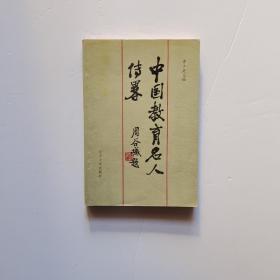 中国教育名人
传略
周谷城题